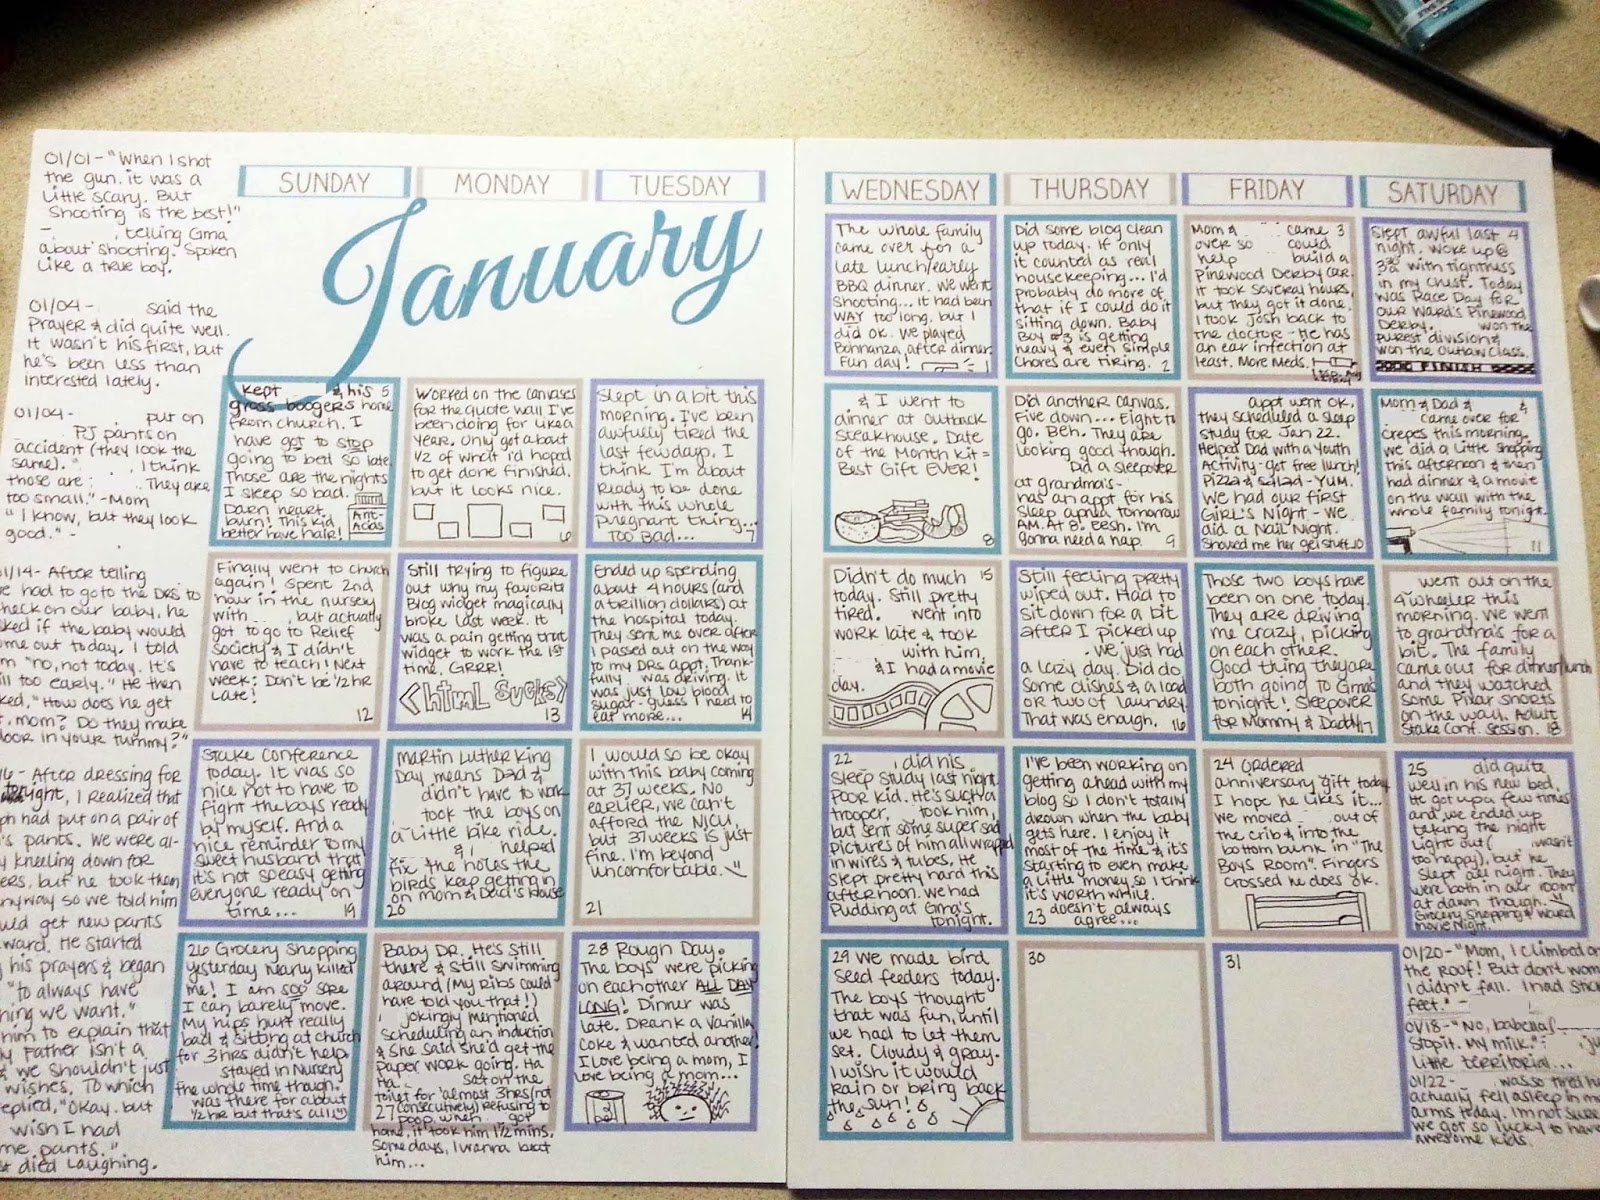 01/01 - "When I shot
the gun. it was a
little scary. But
Shooting is the best!"
- , telling Gma
about shooting. Spoken
like a true boy.
01/04 - said the
Prayer & did quite well.
It wasn't his first, but
he's been less than
interested lately.
01/04 - put on
PJ pants on
accident (they look the
same). " , I think
those are . They are
too small." - Mom
"I know, but they look
good." -
01/14 - After telling
had to go to the DRs to
check on our baby, he
asked if the baby would
come out today. I told
"no, not today. It's
too early." He then
asked, "How does he get
mom? Do they make
door in your tummy?"
After dressing for
I realized that
had put on a pair of
pants. We were al-
kneeling down for
but he took them
anyway so we told him
get new pants
He started
his prayers & began
"to always have
we want."
him to explain that
Father isn't a
& we shouldn't just
wishes. To which
replied, "Okay. but
wish I had
pants."
died laughing.
SUNDAY
MONDAY
TUESDAY
January
WEDNESDAY
THURSDAY
FRIDAY
SATURDAY
The whole family
came over for a
late lunch/early
BBQ dinner. We went
shooting... it had been
WAY too long. but I
did ok. We played
Bohnanza after dinner.
Fun day! 1
Did some blog clean
up today. If only
it counted as real
housekeeping... I'd
probably do more of
that if I could do it
sitting down. Baby
Boy #3 is getting
heavy & even simple
chores are tiring. 2
Mom & came 3
over so could
help build a
Pinewood Derby car.
It took several hours,
but they got it done.
I took Josh back to
the doctor - He has
an ear infection at
least. More Meds.
Slept awful last 4
night. Woke up @
3 with tightness
in my chest. Today
was Race Day for
our ward's Pinewood
Derby. won the
purest division &
won the outlaw class.
FINISH
Kept & his 5
gross boogers home
from church. I
have got to stop
going to bed so late.
Those are the nights
I sleep so bad.
Darn heart
burn! This kid
better have hair!
Ant-
Acids
Worked on the canvases
for the quote wall I've
been doing for like a
year. Only got about
1/2 of what I'd hoped
to get done finished.
but it looks nice.
6
Slept in a bit this
morning. I've been
awfully tired the
last few days. I
think I'm about
ready to be done
with this whole
pregnant thing...
Too bad... 7
& I went to
dinner at Outback
Steakhouse. Date
of the Month kit =
Best Gift EVER!
8
Did another canvas.
Five down... Eight to
go. Beh. They are
looking good though.
Did a sleepover
at grandma's -
has an appt for his
sleep apnea tomorrow
AM. At 8. eesh. I'm
gonna need a nap. 9
appt went ok,
they scheduled a sleep
study for Jan 22.
Helped Dad with a Youth
Activity - get free lunch!
Pizza & Salad - YUM.
We had our first
Girl's Night - we
did a Nail Night.
Showed me her gel stuff. 10
Mom & Dad & &
came over for
crepes this morning.
we did a little shopping
this afternoon & then
had dinner & a movie
on the wall with the
whole family tonight.
11
Finally went to church
again! Spent 2nd
hour in the nursery
with , but actually
got to go to Relief
Society & I didn't
have to teach! Next
week: Don't be 1/2 hr
late!
12
Still trying to figure
out why my favorite
Blog widget magically
broke last week. It
was a pain getting that
widget to work the 1st
time. GRRR!
<html sucks>
13
Ended up spending
about 4 hours (and
a trillion dollars) at
the hospital today.
They sent me over after
I passed out on the way
to my DRs appt. Thank-
fully was driving. It
was just low blood
sugar - guess I need to
eat more... 14
Didn't do much 15
today. Still pretty
tired. went into
work late & took
with him,
& I had a movie
day.
Still feeling pretty
wiped out. Had to
sit down for a bit
after I picked up
. We just had
a lazy day. Did do
some dishes & a load
or two of laundry.
That was enough. 16
Those two boys have
been on one today.
They are driving
me crazy, picking
on each other.
Good thing they are
both going to Gma's
tonight! Sleepover
for Mommy & Daddy! 17
went out on the
4 wheeler this
morning. We went
to grandma's for a
bit. The family
came out for dinner/lunch
and they watched
some Pixar shorts
on the wall. Adult
Stake Conf. Session. 18
Stake Conference
today. It was so
nice not to have to
fight the boys ready
by myself. And a
nice reminder to my
sweet husband that
it's not so easy getting
everyone ready on
time... 19
Martin Luther King
Day means Dad &
didn't have to work
took the boys on
a little bike ride.
& helped
fix the holes the
birds keep getting in
on Mom & Dad's House
20
I would so be okay
with this baby coming
at 37 weeks. No
earlier, we can't
afford the NICU,
but 37 weeks is just
fine. I'm beyond
uncomfortable.
21
22 did his
sleep study last night.
Poor kid. He's such a
trooper. took him,
but sent some super sad
pictures of him all wrapped
in wires & tubes. He
slept pretty hard this
afternoon. we had
Pudding at Gma's
tonight.
I've been working on
getting ahead with my
blog so I don't totally
drown when the baby
gets here. I enjoy it
most of the time & it's
starting to even make
a little money, so I think
it's worth while.
23 doesn't always
agree...
24 Ordered
anniversary gift today
I hope he likes it...
We moved out of
the crib & into the
bottom bunk in "The
Boys Room". Fingers
crossed he does ok.
25 did quite
well in his new bed.
He got up a few times
and we ended up
taking the night
light out ( wasn't
too happy), but he
slept all night. They
were both in our room
at dawn though.
Grocery Shopping & ward
movie night.
26 Grocery Shopping
yesterday nearly killed
me! I am soo sore
I can barely move.
My hips hurt really
bad & sitting at church
for 3 hrs didn't help.
stayed in Nursery
the whole time though.
was there for about
1/2 hr but that's all
Baby DR. He's still
there & still swimming
around (My ribs could
have told you that!)
jokingly mentioned
scheduling an induction
& She said she'd get the
paper work going. Ha
Ha. sat on the
toilet for almost 3hrs (not
27 consecutively) refusing to
poop. When got
home, it took him 1 1/2 mins.
Some days, I wanna beat
him...
28 Rough Day.
The boys were picking
on each other ALL DAY
LONG! Dinner was
late. Drank a Vanilla
Coke & wanted another!
I love being a mom, I
love being a mom...
29 We made bird
seed feeders today.
The boys thought
that was fun, until
we had to let them
set. Cloudy & gray.
I wish it would
rain or bring back
the sun!
30
31
01/20 - "Mom, I climbed on
the roof! But don't
I didn't fall. I had
feet." -
01/18 - "No,
Stop it. My milk." -
little territorial...
01/22 - was so tired he
actually fell asleep in my
arms today. I'm not sure
we got so lucky to have
awesome kids.